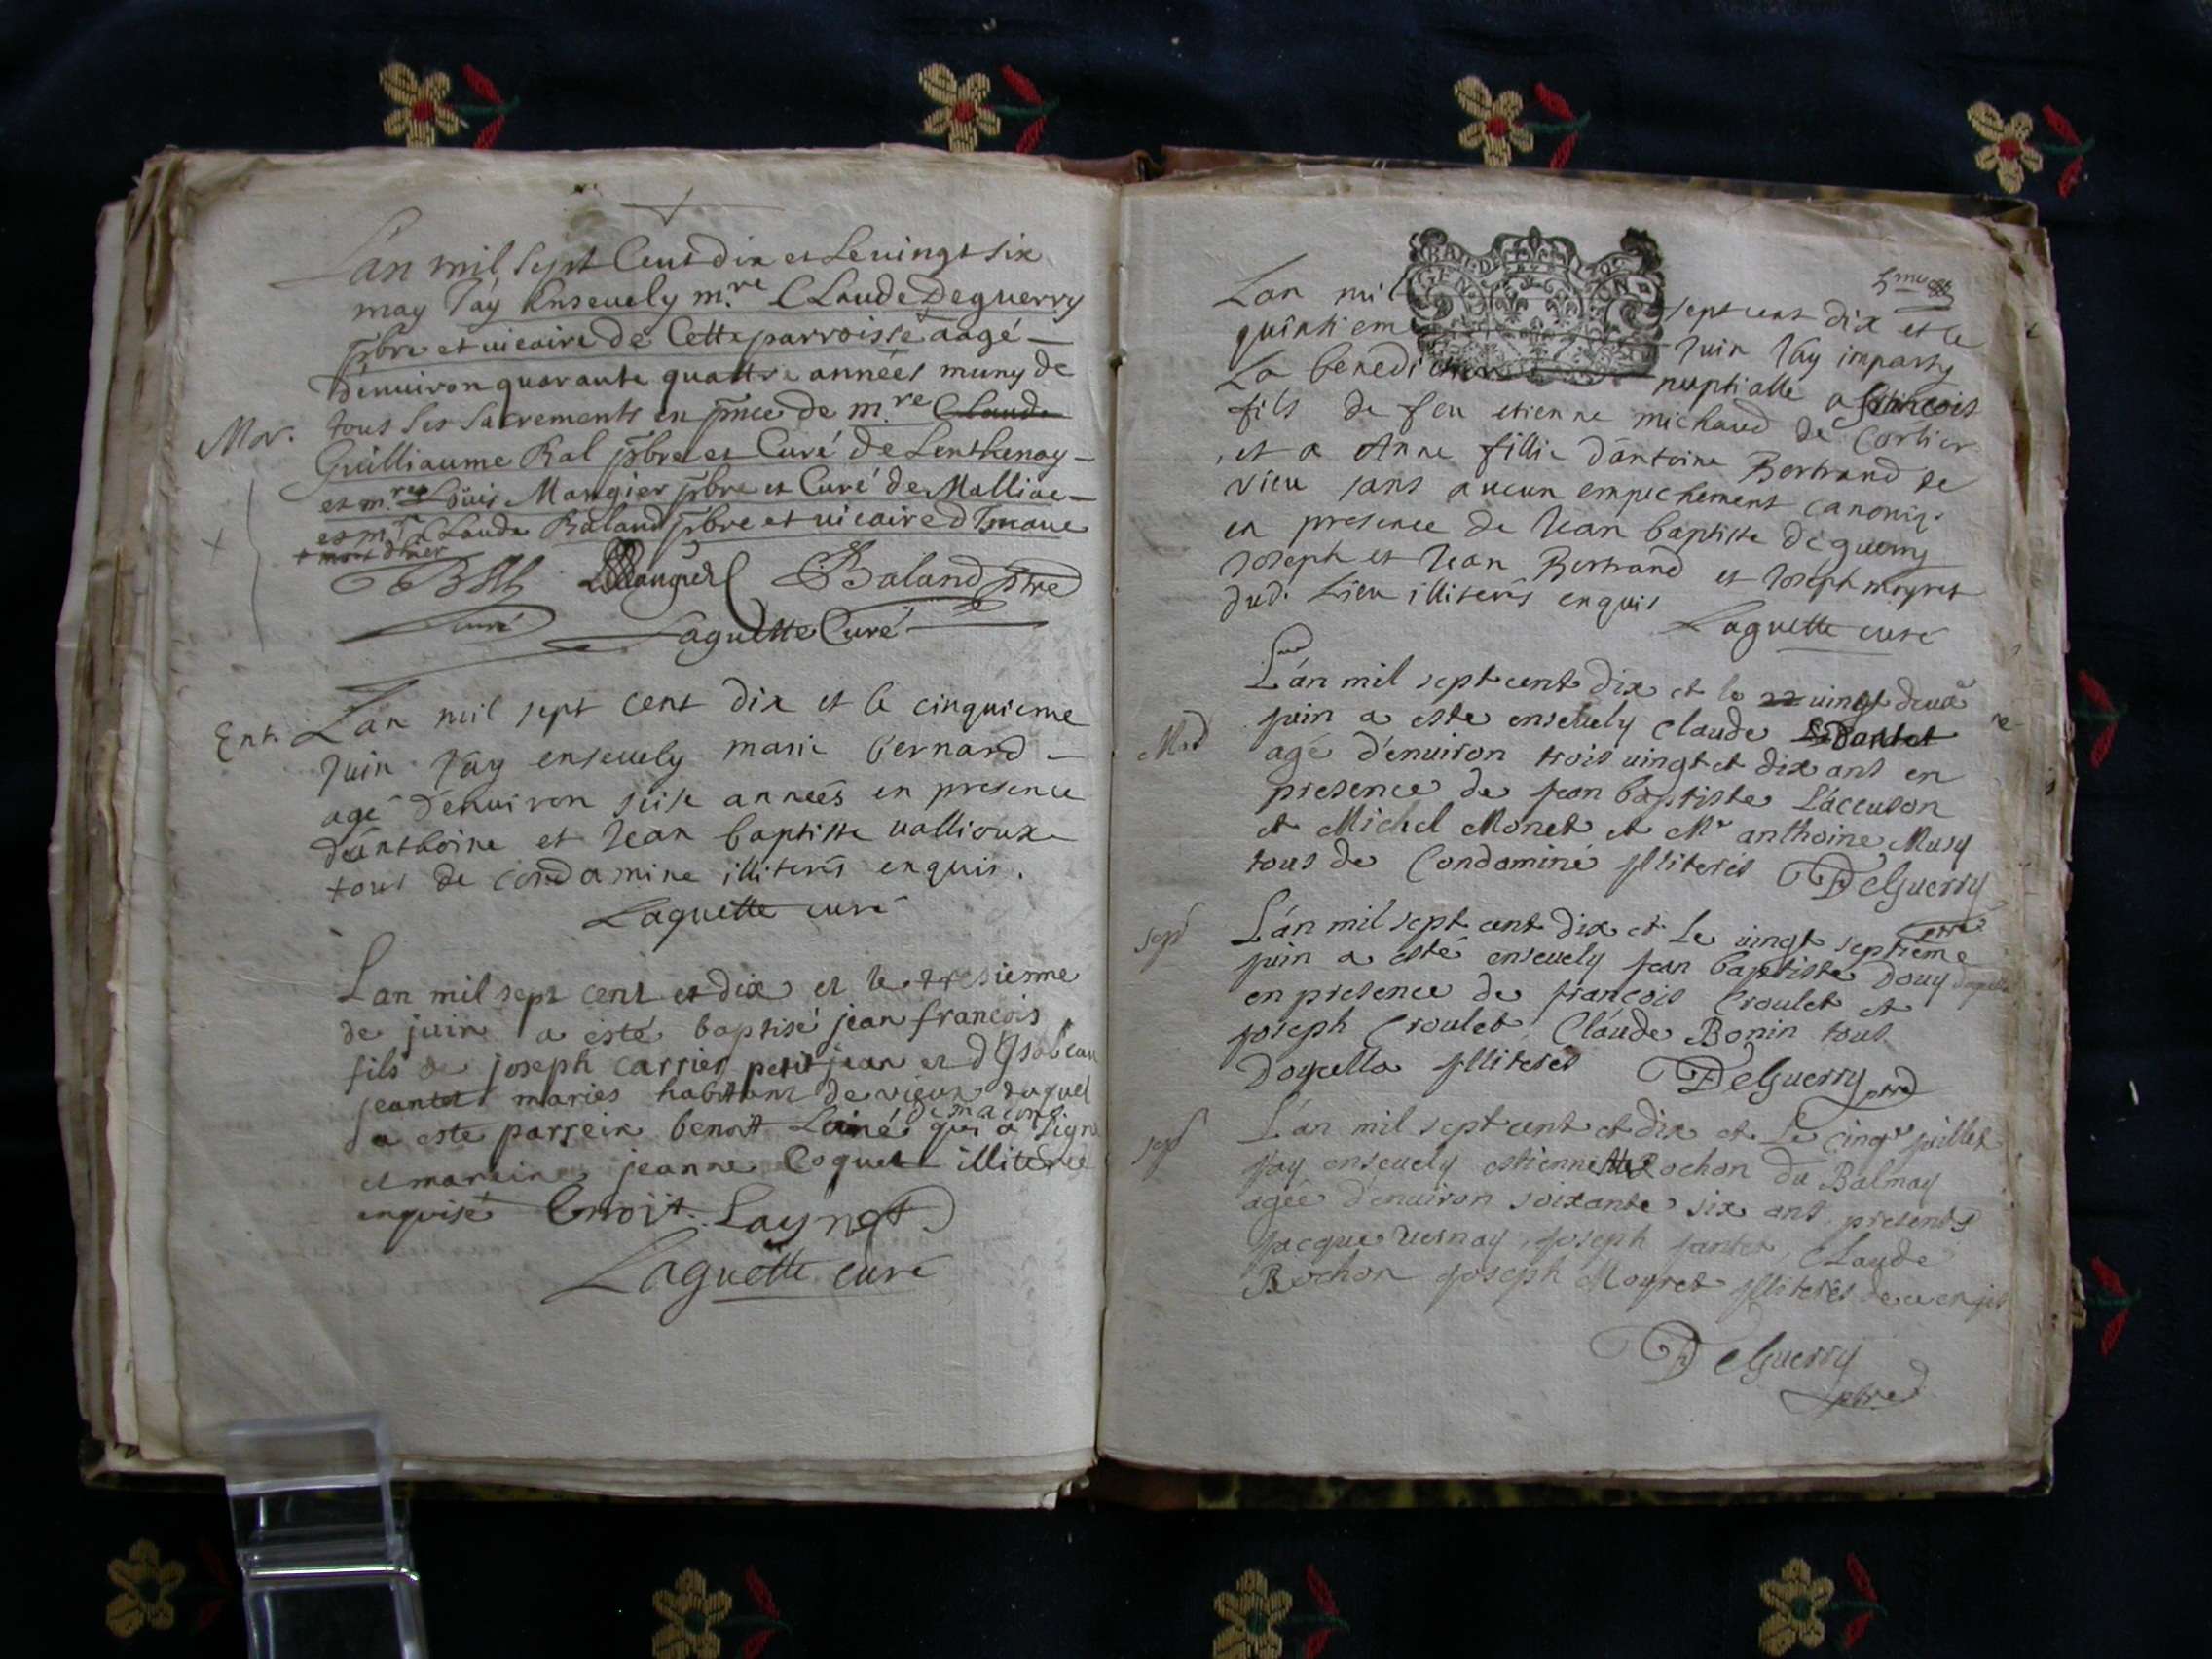 L'an mil sept Cent dix et Le vingt six
may J'ay Enseuely m.re CLaude Deguerry
pbre et uicaire de Cette parroisse aagé
denuiron quarante quattre années muny de
tous Ses Sacrements en pnce de m.re Claude
Mor.
Guilliaume Ral pbre et Curé de Lenthenay
et m.re Loüis Mangier pbre et Curé de Malliac
et m.re CLaude Baland pbre et uicaire d
+ mort d'hier
LMangier Baland pbre
curé
Laguette Curé
Ent. Lan mil sept cent dix et le cinquieme
Juin Jay enseuely marie bernard
agé denuiron seise années en presence
d'anthoine et Jean baptiste uallioux
tous de condamine illiterés enquis.
Laguette curé
Lan mil sept cent et dix et le tresiesme
de juin a esté baptisé jean francois
fils de joseph carrier petit jean et d'Isabeau
jeantet mariés habitant de vieux duquel
a este parrein benoit Lainé qui a signé
et mareine jeanne Coquet illiterée
enquise benoit Laynet
Laguette curé
Lan mil sept cent dix et le
quintiem Juin Jay imparty
La benediction nuptialle a francois
fils de feu etienne michaud de Corlier
et a Anne fillie dantoine Bertrand de
vieu sans aucun empechement canoniq.
en presence de Jean baptiste deguerry
Joseph et Jean Bertrand et Joseph moyret
dud. Lieu illiterés enquis
Laguette curé
L'an mil sept cent dix et le 22 uingt deux
juin a este enseuely Claude
Mort
agé d'enuiron trois uingt et dix ans en
presence de jean baptiste Lacceuson
et Michel Monet et Mr anthoine Musy
tous de Condamine jlliterés DelGuerry
sep
L'an mil sept cent dix et Le uingt septieme
juin a esté enseuely jean baptiste Douy
en presence de françois Croulet et
joseph Croulet Claude Bonin tous
Doyella jlliteres DelGuerry pbre
sep
L'an mil sept cent et dix et Le cinqe juillet
jay enseuely estiennette Rochon du Balmay
agée d'enuiron soixante six ans presents
jacque uernay, joseph jantet, Claude
Rochon joseph Moyret jlliterés de ce enquis
DelGuerry
pbre